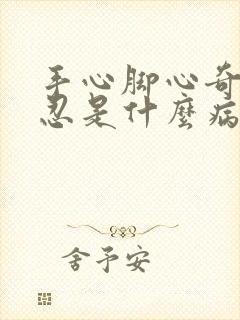 手心脚心奇
忍是什麼病
舍予安